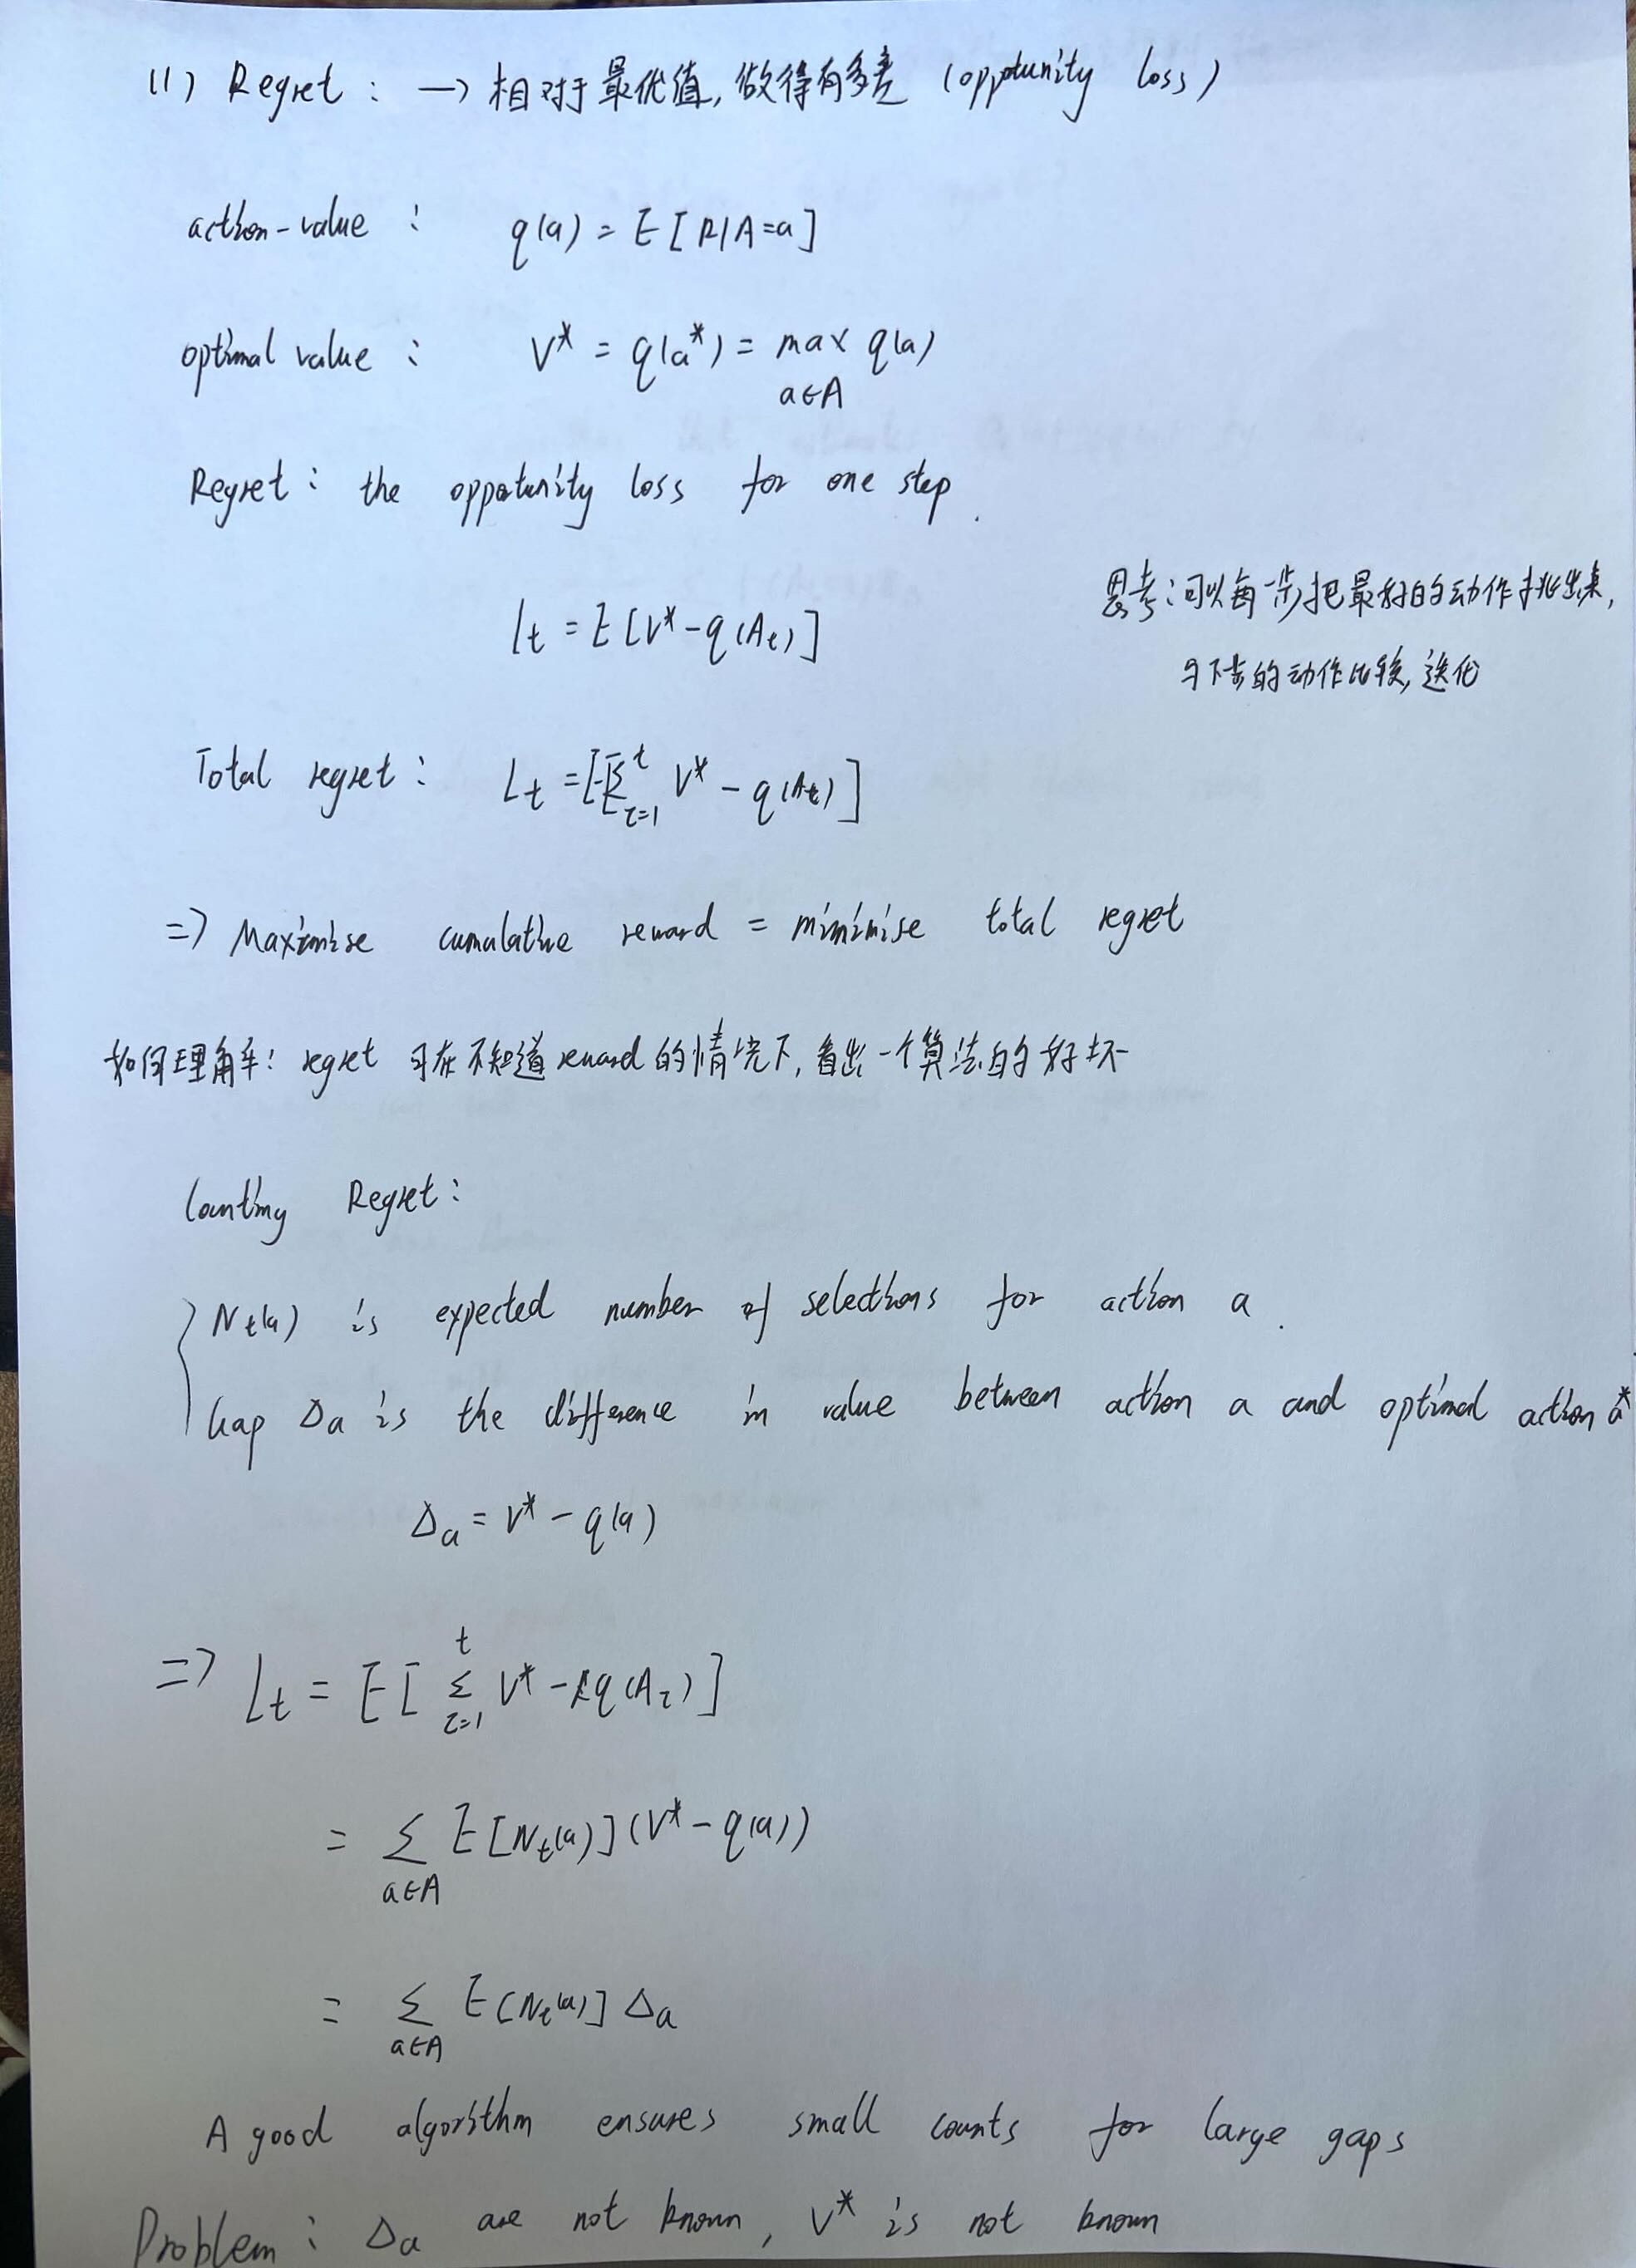 (1) Regret : → 相对于最优值, 做得有多差 (opptunity loss)
action-value : q(a) = E[R|A=a]
optimal value : V* = q(a*) = max q(a)
a∈A
Regret : the oppotunity loss for one step.
lt = E[V*-q(At)]
思考:可以每一步把最好的动作挑出来,
与下去的动作比较, 迭代
Total regret : Lt = E[Σ V* - q(At)]
t
τ=1
=> Maximise cumulative reward = minimise total regret
如何理解: regret 可在不知道reward的情况下, 看出一个算法的好坏
Counting Regret :
Nt(a) is expected number of selections for action a.
Gap Δa is the difference in value between action a and optimal action a*
Δa = V* - q(a)
=> Lt = E[Σ V* - q(Aτ)]
t
τ=1
= Σ E[Nt(a)](V*-q(a))
a∈A
= Σ E[Nt(a)] Δa
a∈A
A good algorithm ensures small counts for large gaps
Problem : Δa are not known, V* is not known